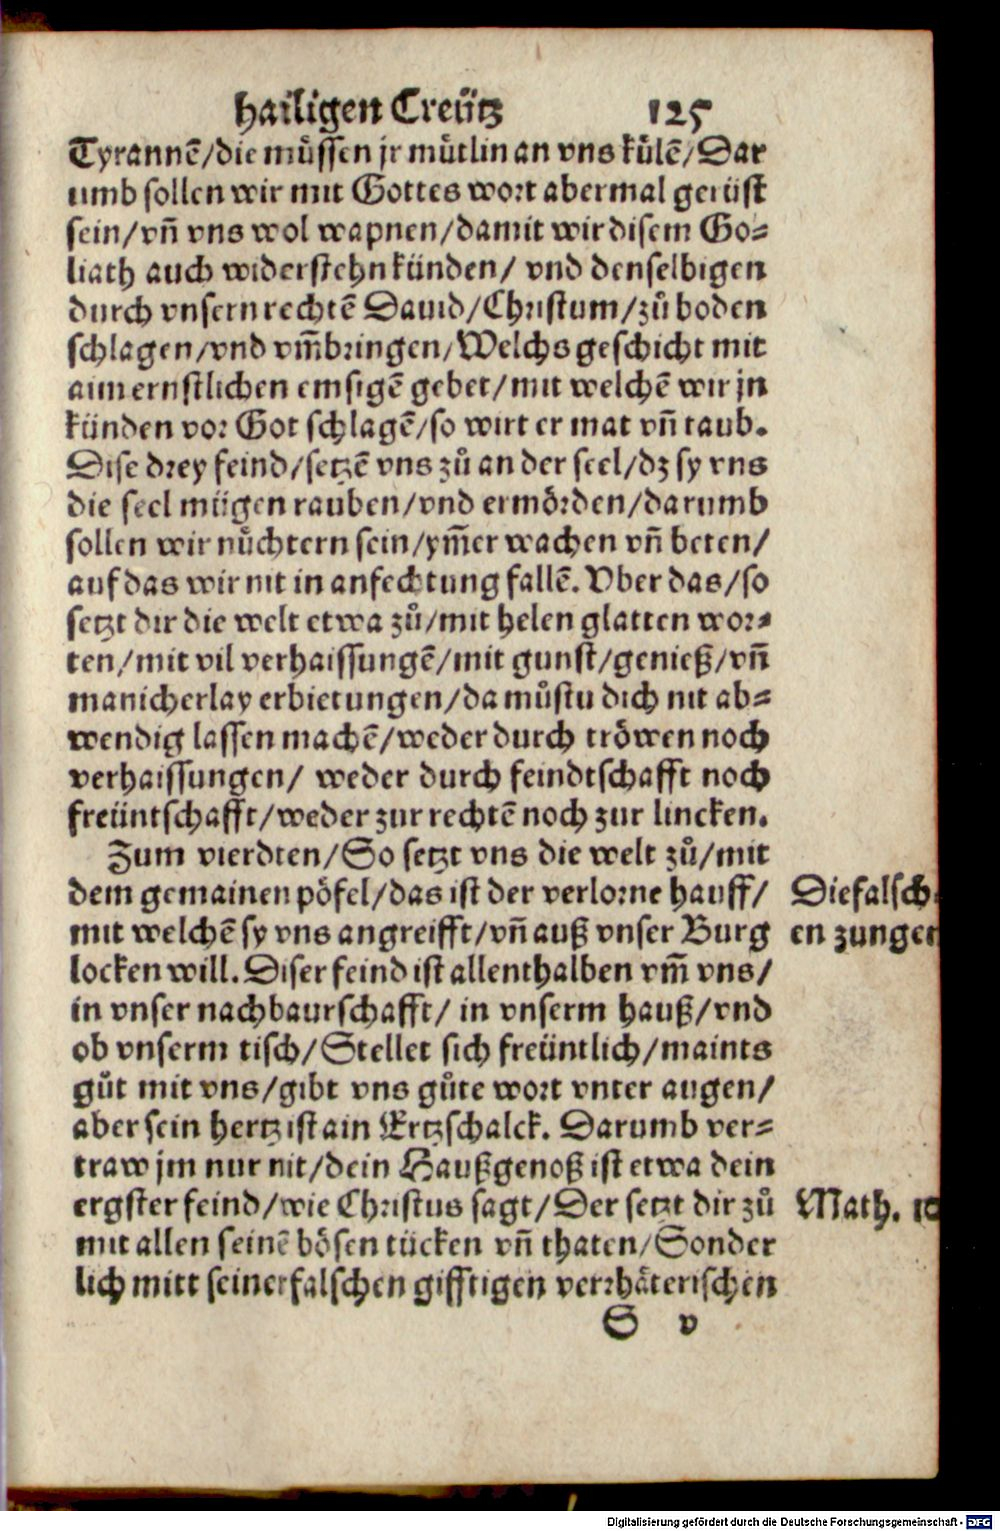 hailigen Creütz 125
Tyrannē/die müssen jr mütlin an vns külē/Dar
umb sollen wir mit Gottes wort abermal gerüst
sein/vñ vns wol wapnen/damit wir disem Go⸗
liath auch widerstehn künden/ vnd denselbigen
durch vnsern rechtē Dauid/Christum/zů boden
schlagen/vnd vm̄bringen/Welchs geschicht mit
aim ernstlichen emsigē gebet/mit welchē wir jn
künden vor Got schlagē/so wirt er mat vñ taub.
Dise drey feind/setzē vns zů an der seel/dz sy vns
die seel mügen rauben/vnd ermörden/darumb
sollen wir nüchtern sein/ym̄er wachen vñ beten/
auf das wir nit in anfechtung fallē. Vber das/so
setzt dir die welt etwa zů/mit helen glatten wor⸗
ten/mit vil verhaissungē/mit gunst/genieß/vñ
manicherlay erbietungen/da můstu dich nit ab⸗
wendig lassen machē/weder durch tröwen noch
verhaissungen/ weder durch feindtschafft noch
freüntschafft/weder zur rechtē noch zur lincken.
Zum vierdten/So setzt vns die welt zů/mit
dem gemainen pöfel/das ist der verlorne hauff/
Die falsch
mit welchē sy vns angreifft/vñ auß vnser Burg
en zungen
locken will. Diser feind ist allenthalben vm̄ vns/
in vnser nachbaurschafft/ in vnserm hauß/vnd
ob vnserm tisch/Stellet sich freüntlich/maints
gůt mit vns/gibt vns gůte wort vnter augen/
aber sein hertz ist ain Ertzschalck. Darumb ver⸗
traw jm nur nit/dein Haußgenoß ist etwa dein
ergster feind/wie Christus sagt/Der setzt dir zů
Math. 10
mit allen seinē bösen tücken vñ thaten/Sonder
lich mitt seiner falschen gifftigen verrhäterischen
S v
Digitalisierung gefördert durch die Deutsche Forschungsgemeinschaft - DFG